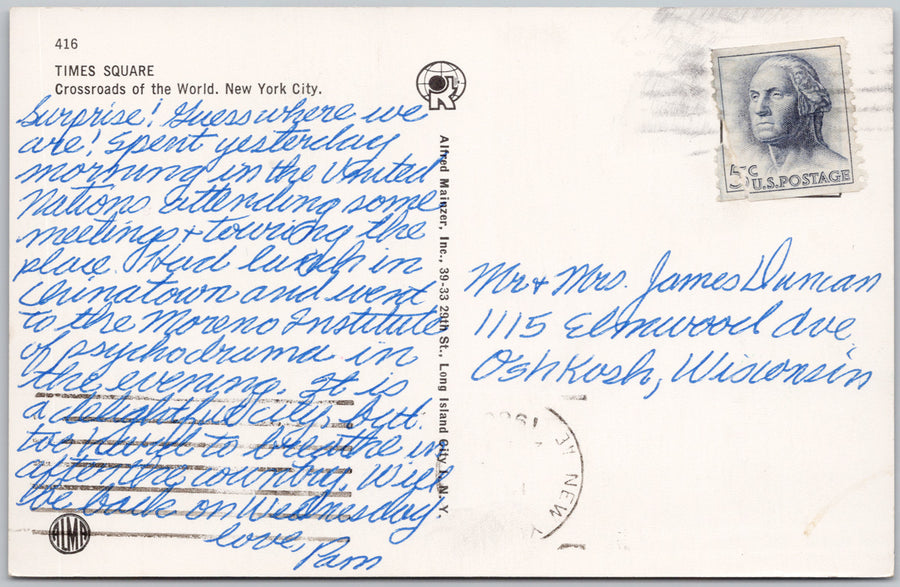 416
TIMES SQUARE
Crossroads of the World. New York City.
Surprise! Guess where we
are! Spent yesterday
morning in the United
Nations attending some
meetings + touring the
place. Had lunch in
Chinatown and went
to the Moreno Institute
of psychodrama in
the evening. It is
a delightful city, but
too hard to breathe in
after big country. Will
be back on Wednesday.
Love,
Pam
ALMA
Alfred Mainzer, Inc., 39-33 29th St., Long Island City 1, N.Y.
5c
U.S. POSTAGE
Mr + Mrs. James Duncan
1115 Elmwood Ave
Oshkosh, Wisconsin
NEW